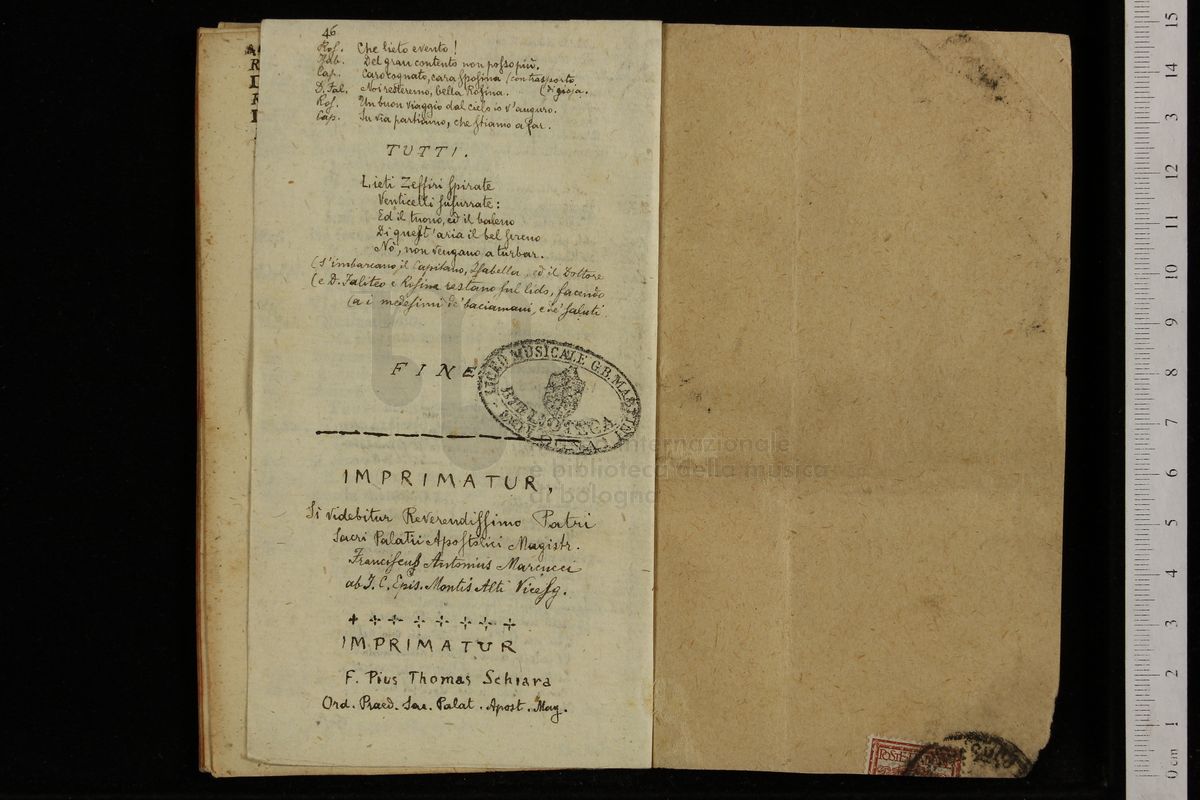 46
Ros. Che lieto evento!
Isab. Del gran contento non posso più.
Cap. Caro cognato, cara sposina (con trasporto
D. Fal. Noi resteremo, bella Rosina. (di gioja.
Ros. Un buon viaggio dal cielo io v'auguro.
Cap. Su via partiamo, che stiamo a far.
TUTTI.
Lieti Zeffiri spirate
Venticelli susurrate:
Ed il tuono, ed il baleno
Di quest'aria il bel sereno
Nò, non vengano a turbar.
(S'imbarcano il Capitano, Isabella, ed il Dottore
(e D. Faliteo e Rosina restano sul lido, facendo
(a i medesimi de' baciamani, e de' saluti.
FINE
LICEO MUSICALE G.B. MARTINI
BIBLIOTECA
IMPRIMATUR,
Si videbitur Reverendissimo Patri
Sacri Palatii Apostolici Magistr.
Franciscus Antonius Marcucci
ab I. C. Epis. Montis Alti Vicesg.
IMPRIMATUR
F. Pius Thomas Schiara
Ord. Praed. Sac. Palat. Apost. Mag.
internazionale
e biblioteca della musica
di bologna
POSTE
0 cm 1 2 3 4 5 6 7 8 9 10 11 12 3 14 15